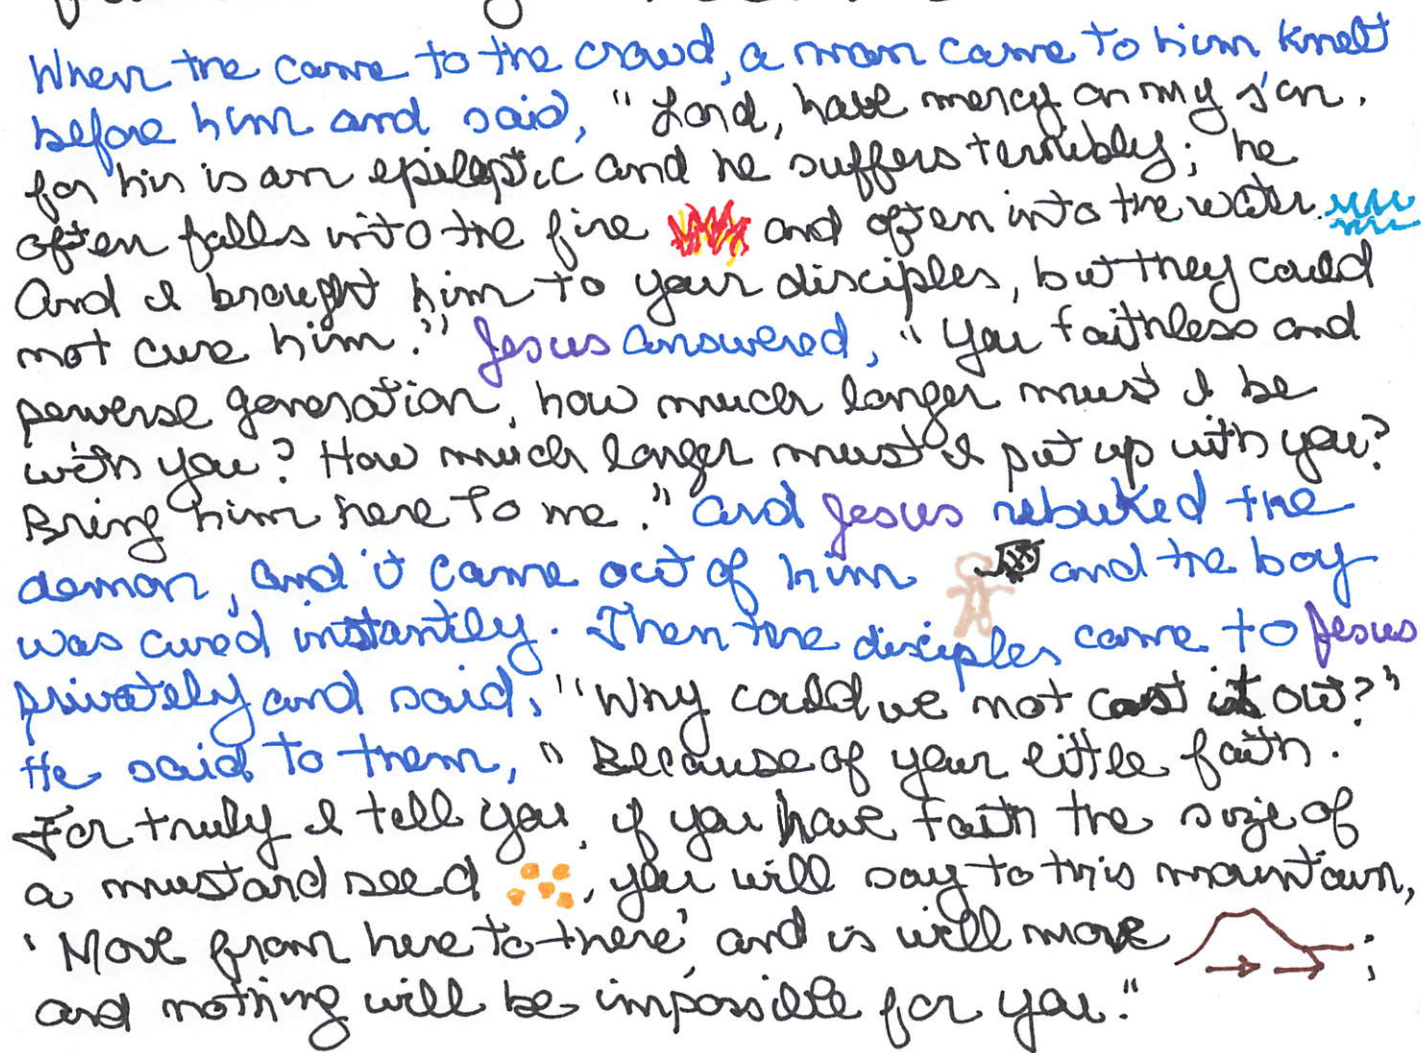 When the came to the crowd, a man came to him knelt
before him and said, "Lord, have mercy on my son.
for his is an epileptic and he suffers terribly; he
often falls into the fire and often into the water.
And I brought him to your disciples, but they could
not cure him." Jesus answered, "You faithless and
perverse generation, how much longer must I be
with you? How much longer must I put up with you?
Bring him here to me." And Jesus rebuked the
demon, and it came out of him and the boy
was cured instantly. Then the disciples came to Jesus
privately and said, "Why could we not cast it out?"
He said to them, "Because of your little faith.
For truly I tell you, if you have faith the size of
a mustard seed, you will say to this mountain,
'Move from here to there', and is will move;
and nothing will be impossible for you."